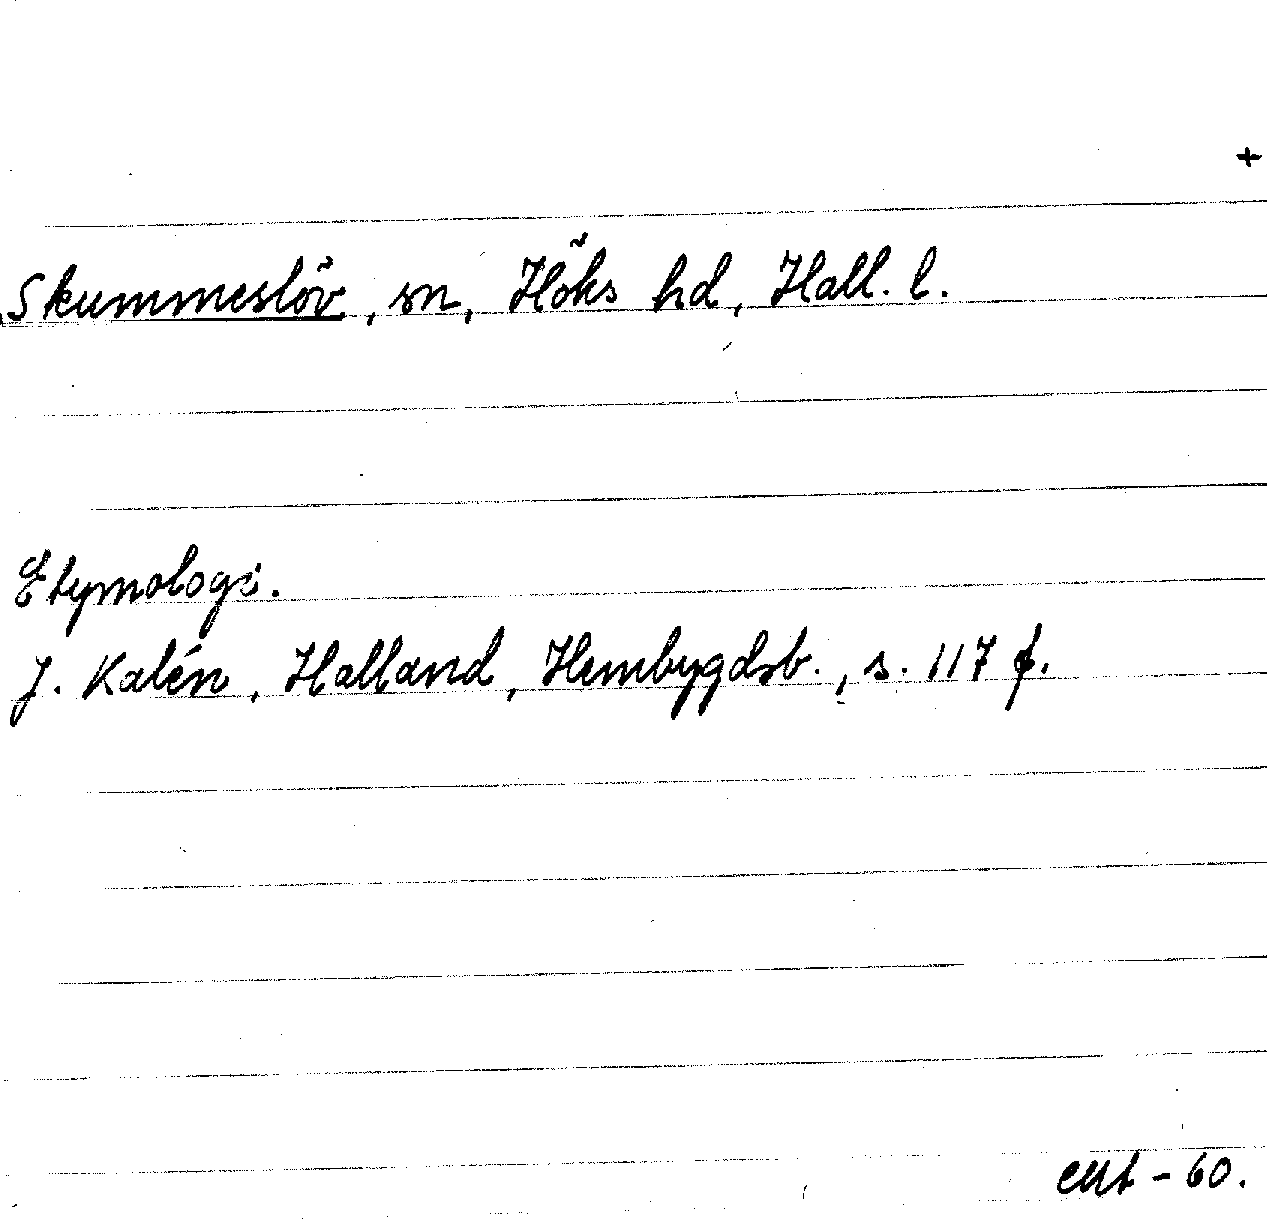 +
Skummeslöv, sn, Höks hd, Hall. l.
Etymologi.
J. Kalén, Halland, Hembygdsb., s. 117 f.
- 60.